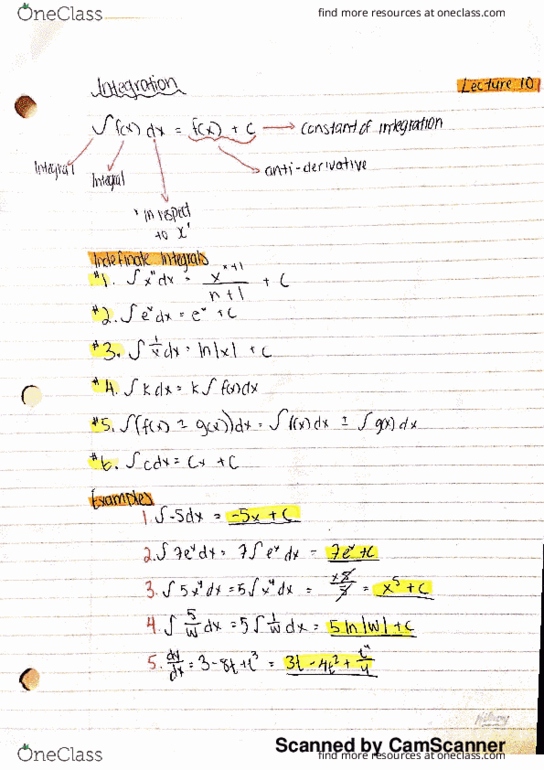 OneClass
find more resources at oneclass.com
Integration
Lecture 10
∫ f(x) dx = f(x) + C → constant of integration
Integral
Integral
anti-derivative
'in respect
to x'
Indefinate Integrals
#1. ∫ x^n dx = x^(n+1) / (n+1) + C
#2. ∫ e^x dx = e^x + C
#3. ∫ 1/x dx = ln|x| + C
#4. ∫ k dx = k ∫ f(x) dx
#5. ∫ (f(x) ± g(x)) dx = ∫ f(x) dx ± ∫ g(x) dx
#6. ∫ c dx = Cx + C
Examples
1. ∫ -5 dx = -5x + C
2. ∫ 7e^x dx = 7 ∫ e^x dx = 7e^x + C
3. ∫ 5x^4 dx = 5 ∫ x^4 dx = = x^5 + C
4. ∫ 5/w dw = 5 ∫ 1/w dw = 5 ln|w| + C
5. dy/dx = 3 - 8t + t^3 = 3t - 4t^2 + t^4/4
Scanned by CamScanner
OneClass
find more resources at oneclass.com